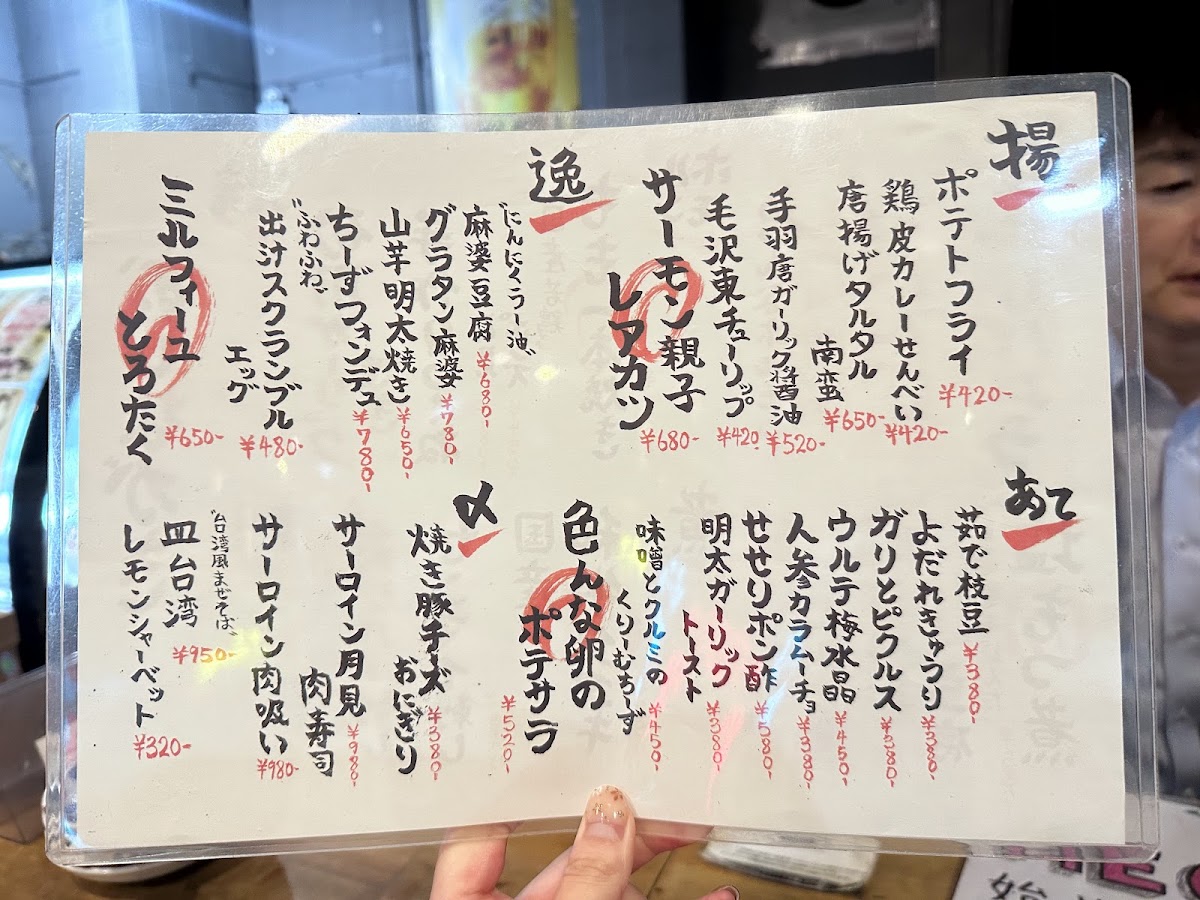 揚
ポテトフライ
¥420-
鶏皮カレーせんべい
¥420-
唐揚げタルタル
南蛮
¥650-
手羽唐ガーリック醤油
¥520-
毛沢東チューリップ
¥420
サーモン親子
レアカツ
¥680-
逸
"にんにくラー油"
麻婆豆腐
¥680-
グラタン麻婆
¥780-
山芋明太焼き
¥650-
ちーずフォンデュ
¥780-
"ふわふわ"
出汁スクランブル
エッグ
¥480-
ミルフィーユ
とろたく
¥650-
あて
茹で枝豆
¥380-
よだれきゅうり
¥380-
ガリとピクルス
¥380-
ウルテ梅水晶
¥450-
人参カラムーチョ
¥380-
せせりポン酢
¥580-
明太ガーリック
トースト
¥380-
味噌とクルミの
くりーむちーず
¥450-
色んな卵の
ポテサラ
¥520-
〆
焼き豚チーズ
おにぎり
¥380-
サーロイン月見
肉寿司
¥980-
サーロイン肉吸い
¥980-
"台湾風まぜそば"
皿台湾
¥950-
レモンシャーベット
¥320-